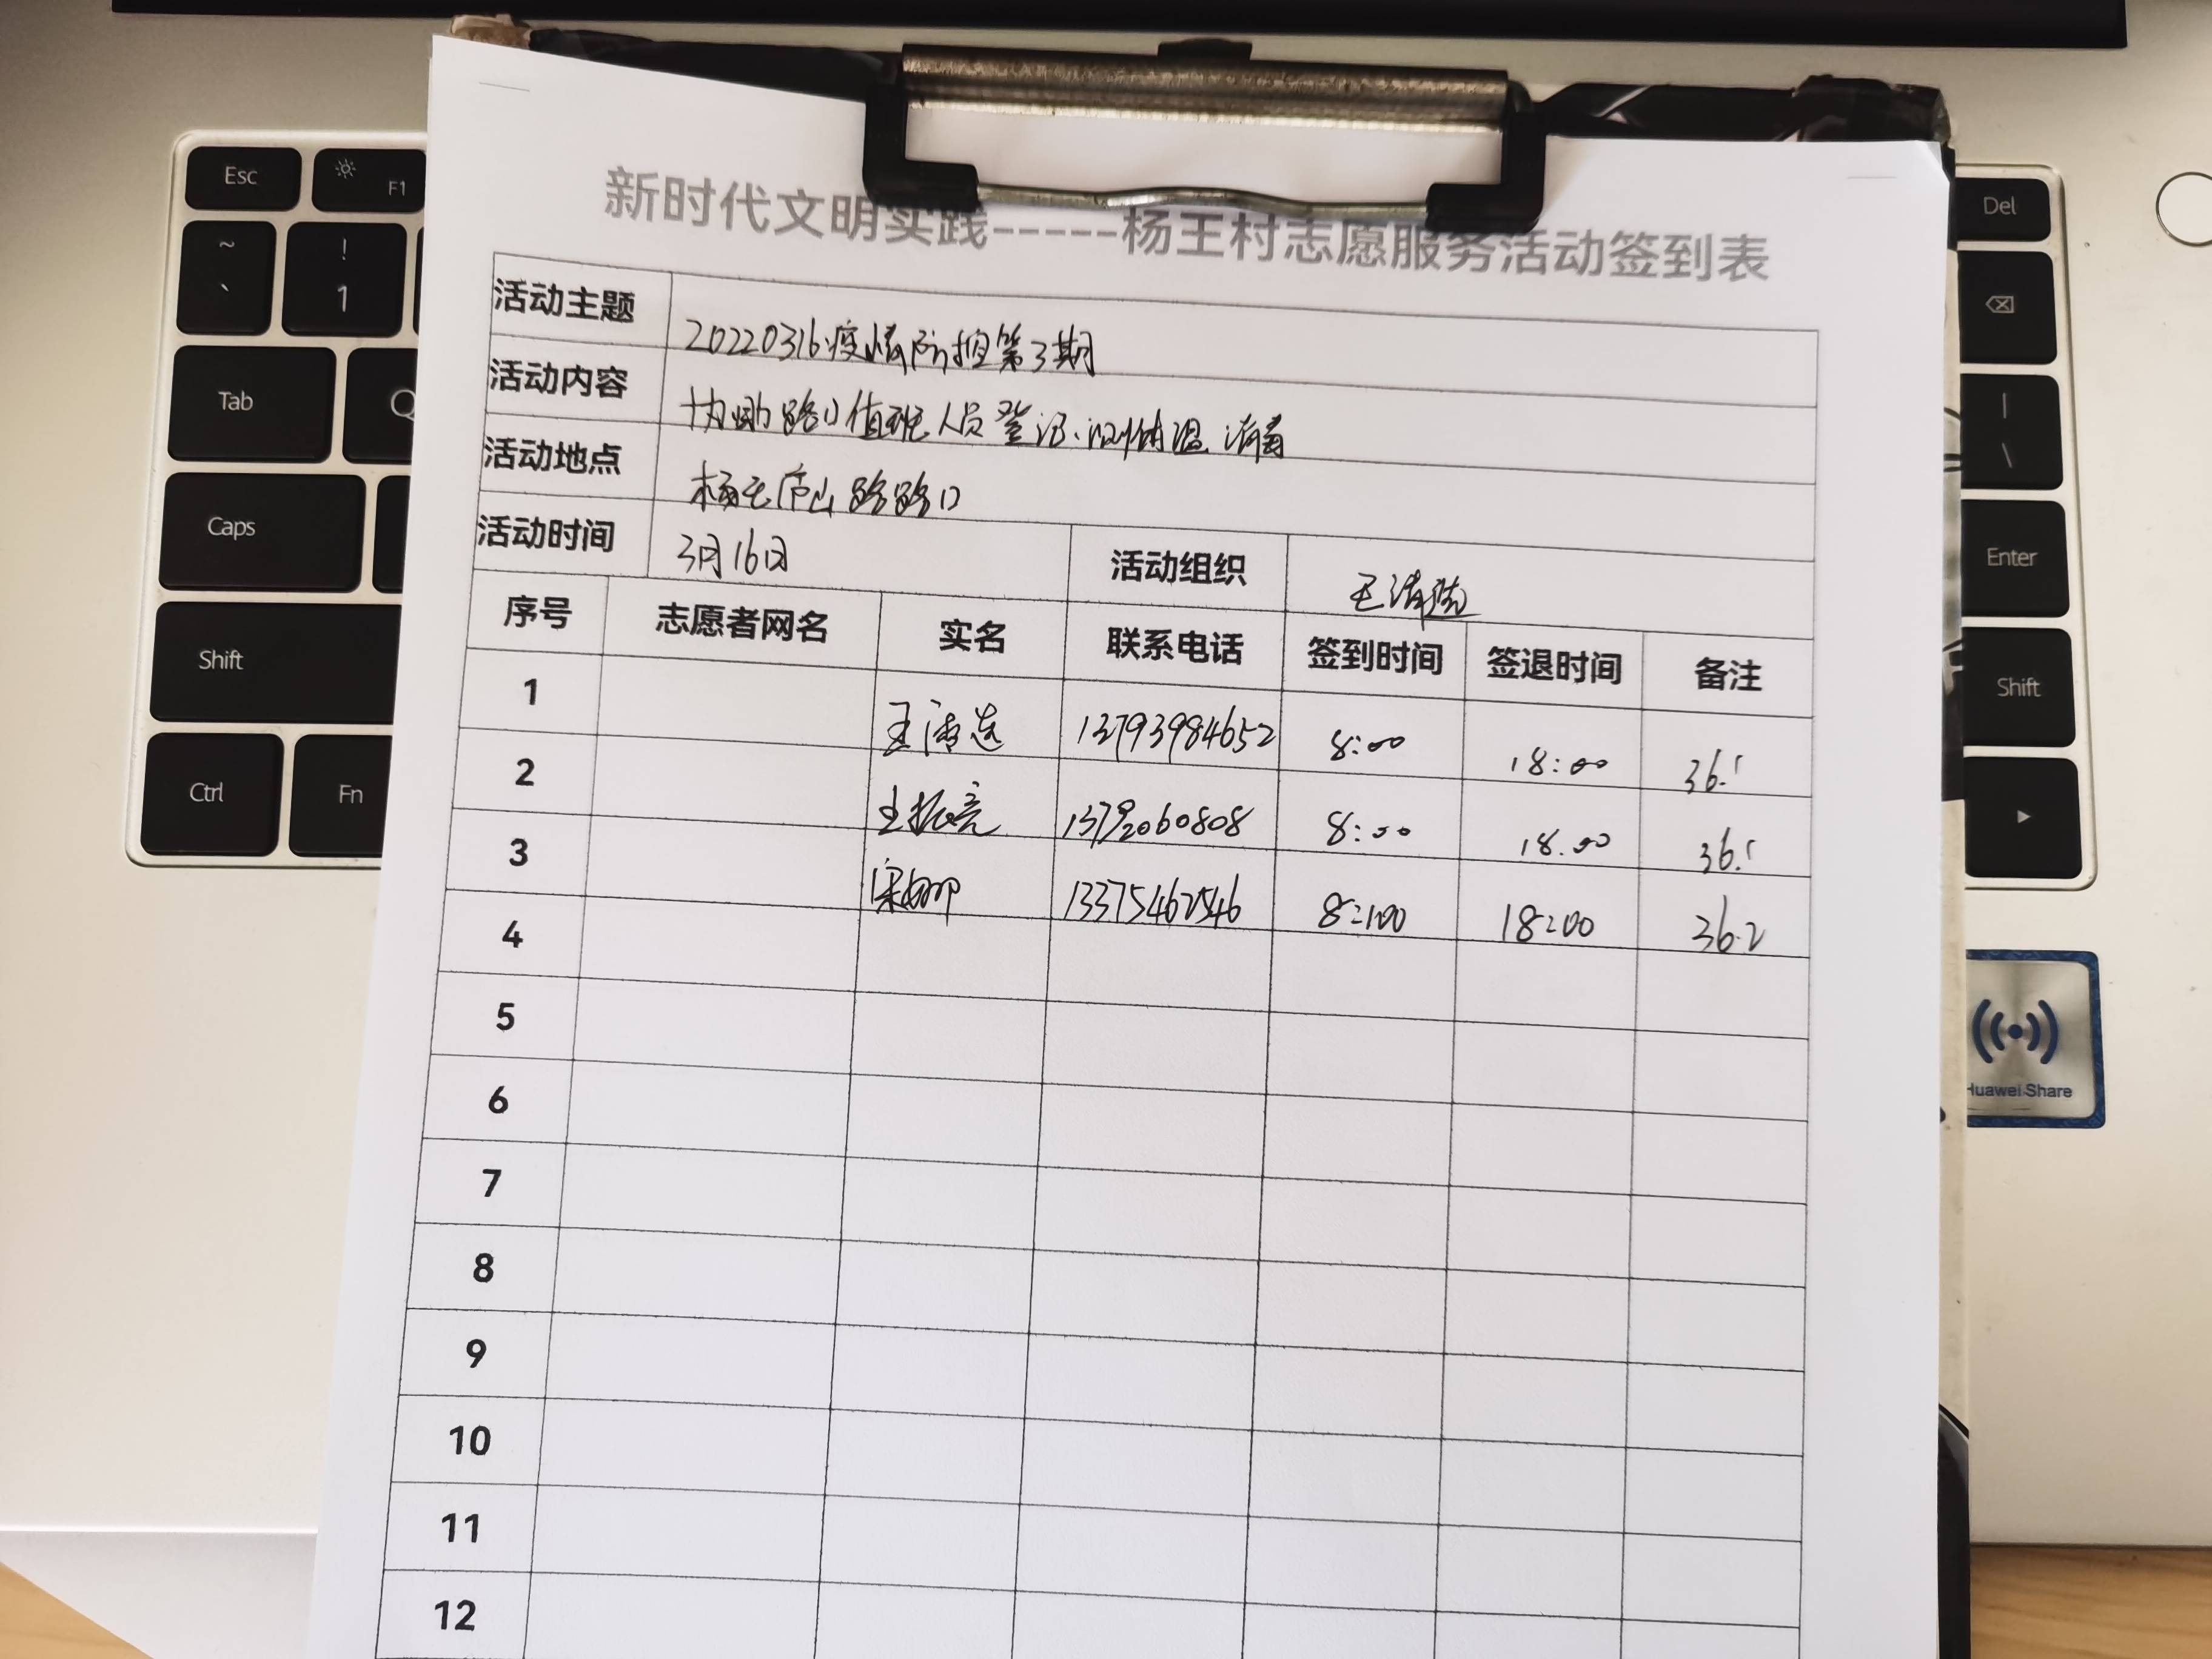 新时代文明实践-----杨王村志愿服务活动签到表
活动主题 20220316疫情防控第3期
活动内容 协助路口值班人员登记、测体温 消毒
活动地点 杨王庐山路路口
活动时间 3月16日 活动组织 王清
序号 志愿者网名 实名 联系电话 签到时间 签退时间 备注
1 王 13793984652 8:00 18:00 36.1
2 王振亮 13792060808 8:00 18.00 36.1
3 宋娜 13375462546 8:00 18:00 36.2
4
5
6
7
8
9
10
11
12
Esc F1
~ ` ! 1
Tab Q
Caps
Shift
Ctrl Fn
Del
| \
Enter
Shift
Huawei Share